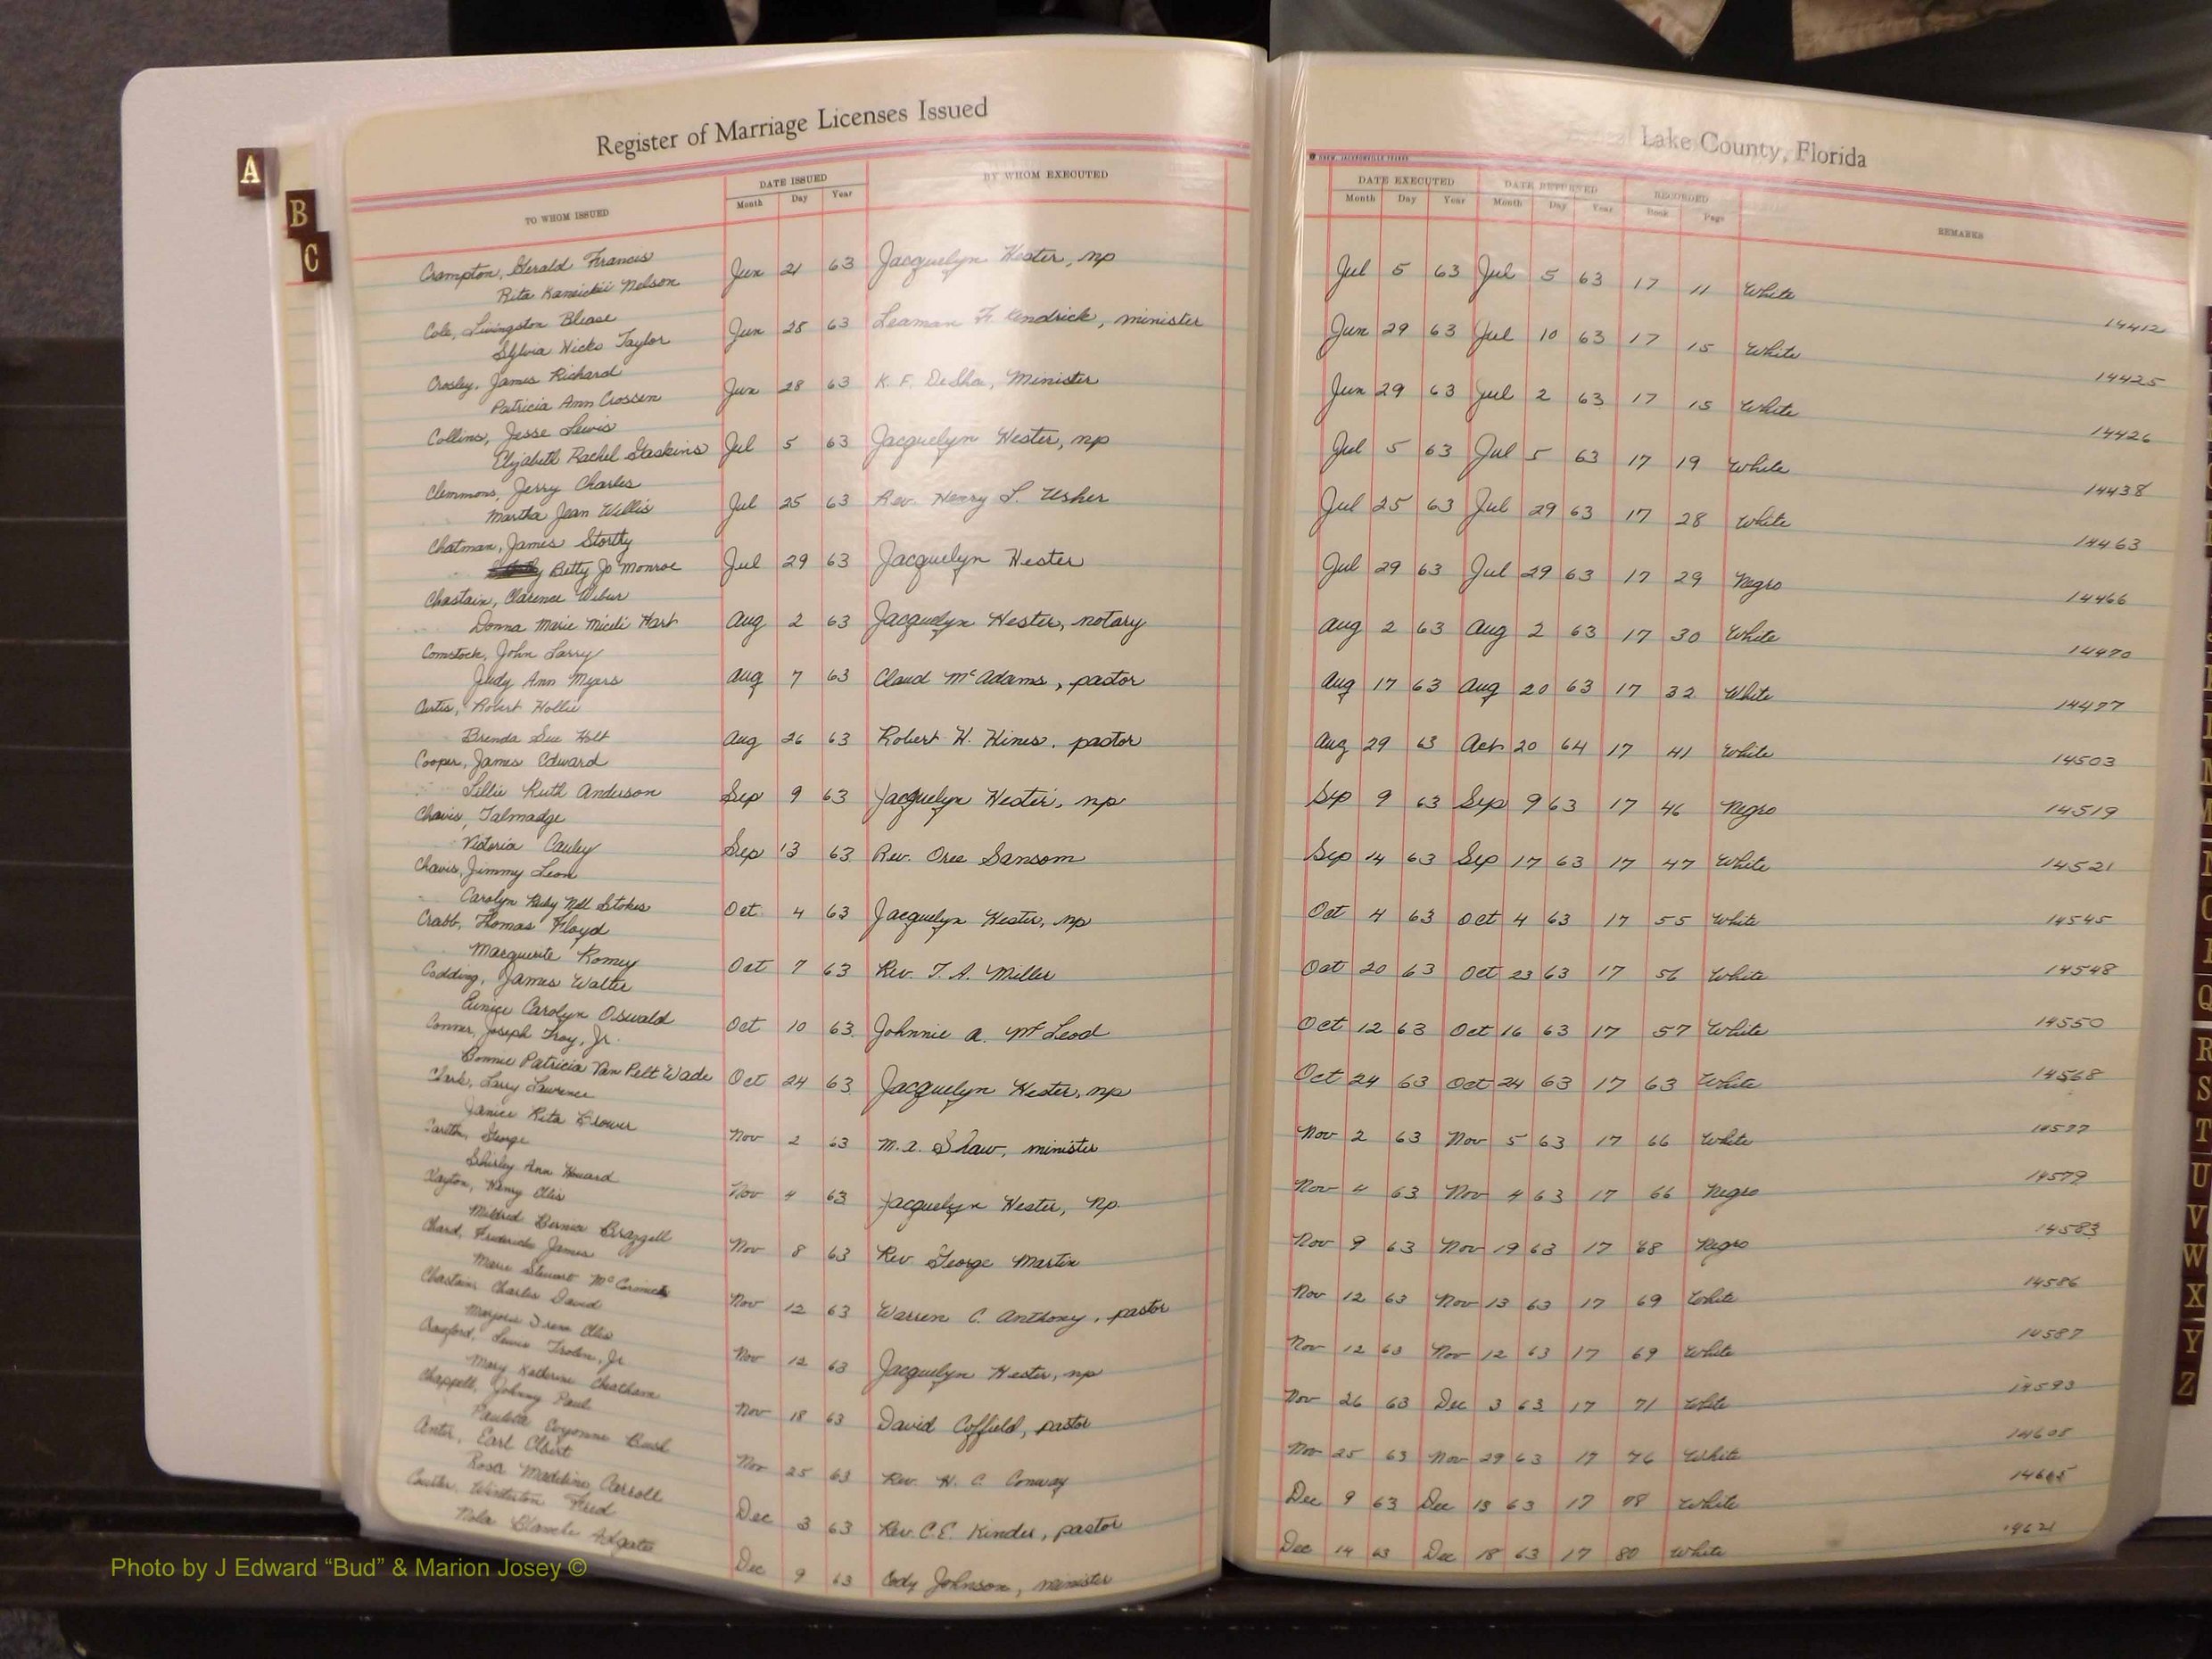 A
B
C
Register of Marriage Licenses Issued
TO WHOM ISSUED
DATE ISSUED
Month Day Year
BY WHOM EXECUTED
Crampton, Gerald Francis
Rita Nelson Jun 21 63 Jacquelyn Hester, np
Cole, Livingston Blease
Sylvia Hicks Taylor Jun 28 63 Leaman F. Kendrick, minister
Crosley, James Richard
Patricia Ann Crossen Jun 28 63 K. F. DeSha, Minister
Collins, Jesse Lewis
Elizabeth Rachel Gaskins Jul 5 63 Jacquelyn Hester, np
Clemmons, Jerry Charles
Martha Jean Willis Jul 25 63 Rev. Henry L. Usher
Chatman, James Stortty
Betty Jo Monroe Jul 29 63 Jacquelyn Hester
Chastain, Clarence Wilbur
Donna Marie Miceli Hart Aug 2 63 Jacquelyn Hester, notary
Comstock, John Larry
Judy Ann Myers Aug 7 63 Claud McAdams, pastor
Curtis, Robert Hollie
Brenda Sue Holt Aug 26 63 Robert H. Hines, pastor
Cooper, James Edward
Lillie Ruth Anderson Sep 9 63 Jacquelyn Hester, np
Chavis, Talmadge
Victoria Cauley Sep 13 63 Rev. Oree Sansom
Chavis, Jimmy Leon
Carolyn Ruby Nell Stokes Oct 4 63 Jacquelyn Hester, np
Crabb, Thomas Floyd
Marguerite Romey Oct 7 63 Rev. T. A. Miller
Codding, James Walter
Eunice Carolyn Oswald Oct 10 63 Johnnie A. McLeod
Conner, Joseph Troy, Jr.
Bonnie Patricia Van Pelt Wade Oct 24 63 Jacquelyn Hester, np
Clark, Larry Lawrence
Janice Rita Brower Nov 2 63 M. A. Shaw, minister
George
Shirley Ann Howard Nov 4 63 Jacquelyn Hester, Np.
Clayton, Henry Otis
Mildred Bernice Brazzell Nov 8 63 Rev George Martin
Chard, Frederick James
Marie Stewart McCormick Nov 12 63 Warren C. Anthony, pastor
Chastain, Charles David
Marjorie Irene Nov 12 63 Jacquelyn Hester, np
Crawford, Lewis Jr.
Mary Katherine Cheatham Nov 18 63 David Coffield, pastor
Chappell, Johnny Paul
Pauleta Evyonne Bush Nov 25 63 Rev. H. C. Conway
Earl Albert
Rosa Madeline Carroll Dec 3 63 Rev. C. E. Kinder, pastor
Fred
Nola Blanche Adgate Dec 9 63 Cody Johnson, minister
Lake County, Florida
DATE EXECUTED
Month Day Year
DATE RETURNED
Month Day Year
RECORDED
Book Page
REMARKS
Jul 5 63 Jul 5 63 17 11 White 14412
Jun 29 63 Jul 10 63 17 15 White 14425
Jun 29 63 Jul 2 63 17 15 White 14426
Jul 5 63 Jul 5 63 17 19 White 14438
Jul 25 63 Jul 29 63 17 28 White 14463
Jul 29 63 Jul 29 63 17 29 Negro 14466
Aug 2 63 Aug 2 63 17 30 White 14470
Aug 17 63 Aug 20 63 17 32 White 14477
Aug 29 63 Oct 20 64 17 41 White 14503
Sep 9 63 Sep 9 63 17 46 Negro 14519
Sep 14 63 Sep 17 63 17 47 White 14521
Oct 4 63 Oct 4 63 17 55 White 14545
Oct 20 63 Oct 23 63 17 56 White 14548
Oct 12 63 Oct 16 63 17 57 White 14550
Oct 24 63 Oct 24 63 17 63 White 14568
Nov 2 63 Nov 5 63 17 66 White 14577
Nov 4 63 Nov 4 63 17 66 Negro 14579
Nov 9 63 Nov 19 63 17 68 Negro 14583
Nov 12 63 Nov 13 63 17 69 White 14586
Nov 12 63 Nov 12 63 17 69 White 14587
Nov 26 63 Dec 3 63 17 71 White 14593
Nov 25 63 Nov 29 63 17 76 White 14608
Dec 9 63 Dec 13 63 17 78 White
Dec 14 63 Dec 18 63 17 80 White 14621
Q
R
S
T
U
V
W
X
Y
Z
Photo by J Edward “Bud” & Marion Josey ©